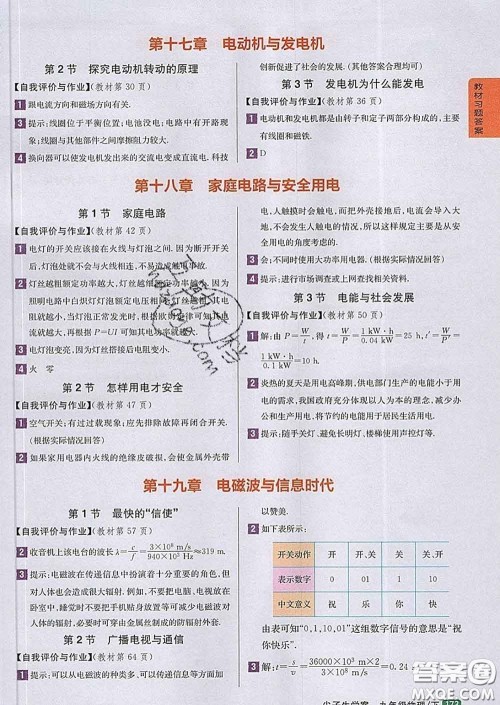 第十七章 电动机与发电机
第2节 探究电动机转动的原理
【自我评价与作业】(教材第30页)
1 跟电流方向和磁场方向有关.
3 提示:线圈位于平衡位置;电池没电;电路中有开路现
象;线圈与其他部件之间摩擦阻力较大.
4 换向器可以使发电机发出的交流电变成直流电. 科技
创新促进了社会的发展. (其他答案合理均可)
第3节 发电机为什么能发电
【自我评价与作业】(教材第36页)
1 电动机和发电机都是由转子和定子两部分构成的,主要
有线圈和磁铁.
2 D
教材习题答案
第十八章 家庭电路与安全用电
第1节 家庭电路
【自我评价与作业】(教材第42页)
1 电灯的开关应该接在火线与灯泡之间. 因为断开开关
后,灯泡就不会与火线相连,不易造成触电事故.
2 灯丝越粗额定电功率越大,灯丝越细额定电功率越小. 因为
照明电路中白炽灯灯泡额定电压相
同,根据欧姆定律可知其电
流就越大,再根据P=UI可知其功率越大.
3 电灯泡变亮,因为灯丝搭接后电阻变小.
4 火 零
第2节 怎样用电才安全
【自我评价与作业】(教材第47页)
1 空气开关;有过过载现象;应先排除故障再闭合开关.
(根据实际情况回答)
2 如果家用电器内火线的绝缘皮破损,会使金属外壳带
电,人触摸时会触电,而把外壳接地后,电流会导入大
地,不会发生人触电的情况,所以这样规定主要是从安
全用电的角度考虑的.
3 会;不同时使用大功率用电器. (根据实际情况回答)
4 提示:进行市场调查或上网查找相关资料.
第3节 电能与社会发展
【自我评价与作业】(教材第50页)
1 解:由P=W/t,得t=W/P=1 kW·h/0.04 kW=25 h,t′=W/P′=
1 kW·h/0.1 kW=10 h.
2 炎热的夏天是用电高峰期,供电部门生产的电能小于用
电的需要,我国政府充分体现了以人为本的理念,减少
办公和生产用电,将节约的电能用于居民生活用电.
3 提示:随手关灯、避免长明灯、楼梯节能灯、楼梯声控灯等.
第十九章 电磁波与信息时代
第1节 最快的“信使”
【自我评价与作业】(教材第57页)
2 收音机上该电台的波长λ=c/f=3×10⁸ m/s/94×10⁴ s⁻¹≈319 m.
3 提示:电磁波在传递信息中扮演着十分重要的角色,但
对人体也会造成很大辐射. 例如,不要把电脑、电视放在
卧室中,睡觉时不要把手机贴身放置等可减少
对人体的辐射. 也可以穿上由金属丝制成的防辐射外套.
第2节 广播电视与通信
【自我评价与作业】(教材第65页)
1 提示:电视给人们传递了大量信息,丰富了人们的生活,
但电视中也有很多负面信息影响青少年成长,因此,难
以赞美.
2 如下表所示:
开关动作 开 开、关 关 关、开
表示数字 0 01 1 10
中文意义 祝 乐 你 快
由表可知“0,1,10,01”这组数字信号的意思是“祝
你快乐”.
3 解:t=s/v=36000×10³ m×2/3×10⁸ m/s=0.24 s.
尖子生学案 九年级物理(下) 173
答案圈
MXQE.COM